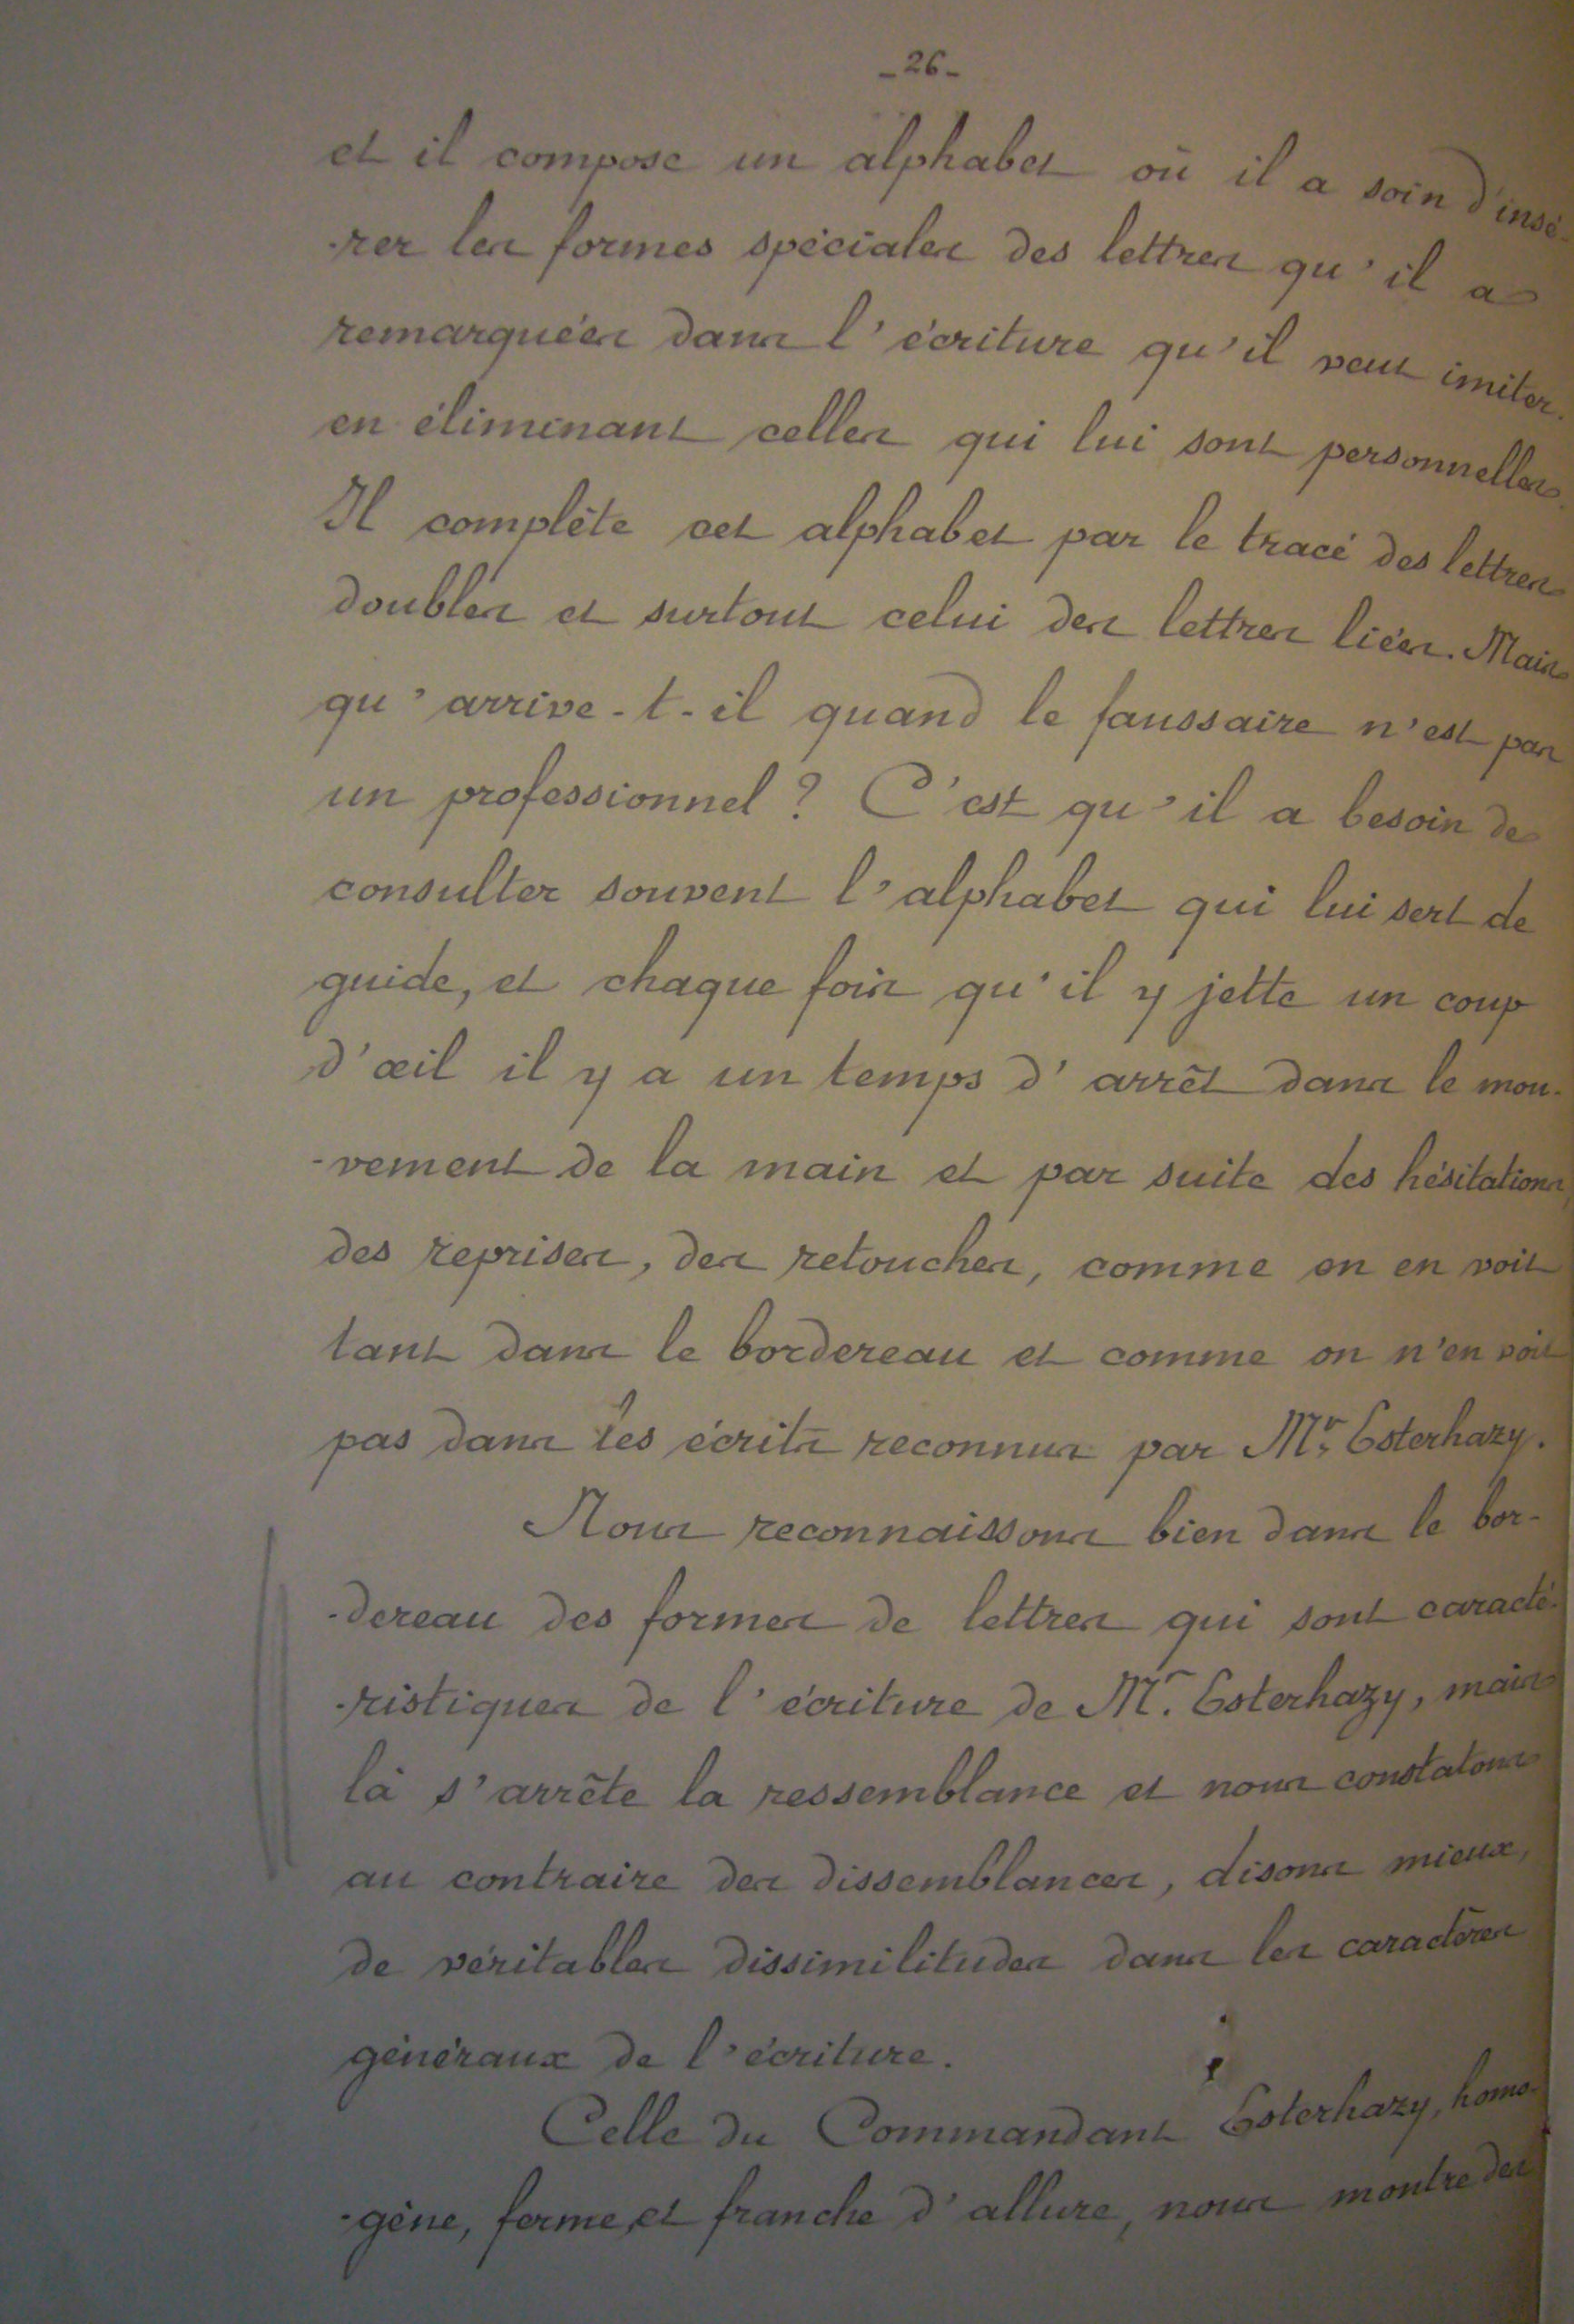 - 26 -
et il compose un alphabet où il a soin d'insé-
-rer les formes spéciales des lettres qu'il a
remarquées dans l'écriture qu'il veut imiter.
en éliminant celles qui lui sont personnelles.
Il complète cet alphabet par le tracé des lettres
doubles et surtout celui des lettres liées. Mais
qu'arrive-t-il quand le faussaire n'est pas
un professionnel ? C'est qu'il a besoin de
consulter souvent l'alphabet qui lui sert de
guide, et chaque fois qu'il y jette un coup
d'œil il y a un temps d'arrêt dans le mou-
-vement de la main et par suite des hésitations,
des reprises, des retouches, comme on en voit
tant dans le bordereau et comme on n'en voit
pas dans les écrits reconnus par Mr. Esterhazy.
Nous reconnaissons bien dans le bor-
-dereau des formes de lettres qui sont caracté-
-ristiques de l'écriture de Mr. Esterhazy, mais
là s'arrête la ressemblance et nous constatons
au contraire des dissemblances, disons mieux,
de véritables dissimilitudes dans les caractères
généraux de l'écriture.
Celle du Commandant Esterhazy, homo-
-gène, ferme, et franche d'allure, nous montre des